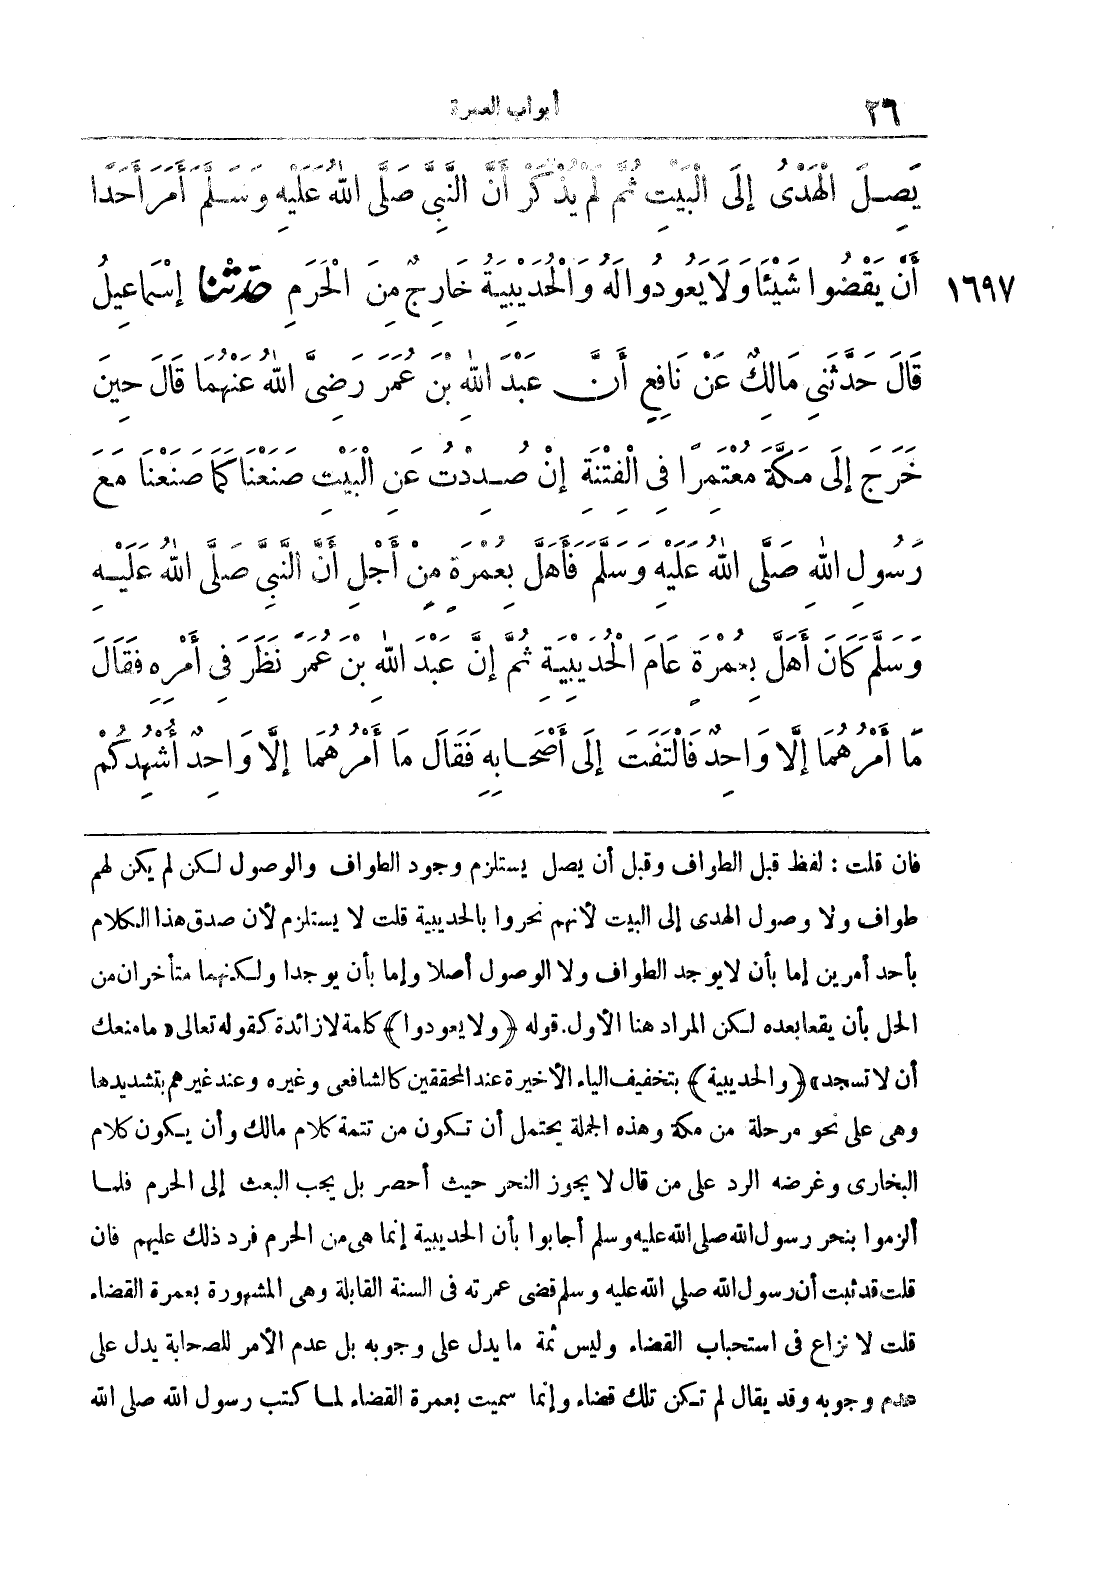 ٢٦
أبواب العمرة
يَصِلَ الْهَدْىُ إِلَى الْبَيْتِ ثُمَّ لَمْ يُذْكَرْ أَنَّ النَّبِىَّ صَلَّى اللهُ عَلَيْهِ وَسَلَّمَ أَمَرَ أَحَدًا
أَنْ يَقْضُوا شَيْئًا وَلَا يَعُودُوا لَهُ وَالْحُدَيْبِيَةُ خَارِجٌ مِنَ الْحَرَمِ حَدَّثَنَا إِسْمَاعِيلُ ١٦٩٧
قَالَ حَدَّثَنِى مَالِكٌ عَنْ نَافِعٍ أَنَّ عَبْدَ اللهِ بْنَ عُمَرَ رَضِىَ اللهُ عَنْهُمَا قَالَ حِينَ
خَرَجَ إِلَى مَكَّةَ مُعْتَمِرًا فِى الْفِتْنَةِ إِنْ صُدِدْتُ عَنِ الْبَيْتِ صَنَعْنَا كَمَا صَنَعْنَا مَعَ
رَسُولِ اللهِ صَلَّى اللهُ عَلَيْهِ وَسَلَّمَ فَأَهَلَّ بِعُمْرَةٍ مِنْ أَجْلِ أَنَّ النَّبِىَّ صَلَّى اللهُ عَلَيْهِ
وَسَلَّمَ كَانَ أَهَلَّ بِعُمْرَةٍ عَامَ الْحُدَيْبِيَةِ ثُمَّ إِنَّ عَبْدَ اللهِ بْنَ عُمَرَ نَظَرَ فِى أَمْرِهِ فَقَالَ
مَا أَمْرُهُمَا إِلَّا وَاحِدٌ فَالْتَفَتَ إِلَى أَصْحَابِهِ فَقَالَ مَا أَمْرُهُمَا إِلَّا وَاحِدٌ أُشْهِدُكُمْ
فان قلت : لفظ قبل الطواف وقبل أن يصل يستلزم وجود الطواف والوصول لكن لم يكن لهم
طواف ولا وصول الهدى إلى البيت لأنهم نحروا بالحديبية قلت لا يستلزم لأن صدق هذا الكلام
بأحد أمرين إما بأن لا يوجد الطواف ولا الوصول أصلا وإما بأن يوجدا ولكنهما متأخران من
الحل بأن يقعا بعده لكن المراد هنا الأول. قوله ﴿ولا يعودوا﴾ كلمة لا زائدة كقوله تعالى «ما منعك
أن لا تسجد» ﴿والحديبية﴾ بتخفيف الياء الأخيرة عند المحققين كالشافعى وغيره وعند غيرهم بتشديدها
وهى على نحو مرحلة من مكة وهذه الجملة يحتمل أن تكون من تتمة كلام مالك وأن يكون كلام
البخارى وغرضه الرد على من قال لا يجوز النحر حيث أحصر بل يجب البعث إلى الحرم فلما
ألزموا بنحر رسول الله صلى الله عليه وسلم أجابوا بأن الحديبية إنما هى من الحرم فرد ذلك عليهم فان
قلت قد ثبت أن رسول الله صلى الله عليه وسلم قضى عمرته فى السنة القابلة وهى المشهورة بعمرة القضاء
قلت لا نزاع فى استحباب القضاء وليس ثمة ما يدل على وجوبه بل عدم الأمر للصحابة يدل على
عدم وجوبه وقد يقال لم تكن تلك قضاء وإنما سميت بعمرة القضاء لما كتب رسول الله صلى الله